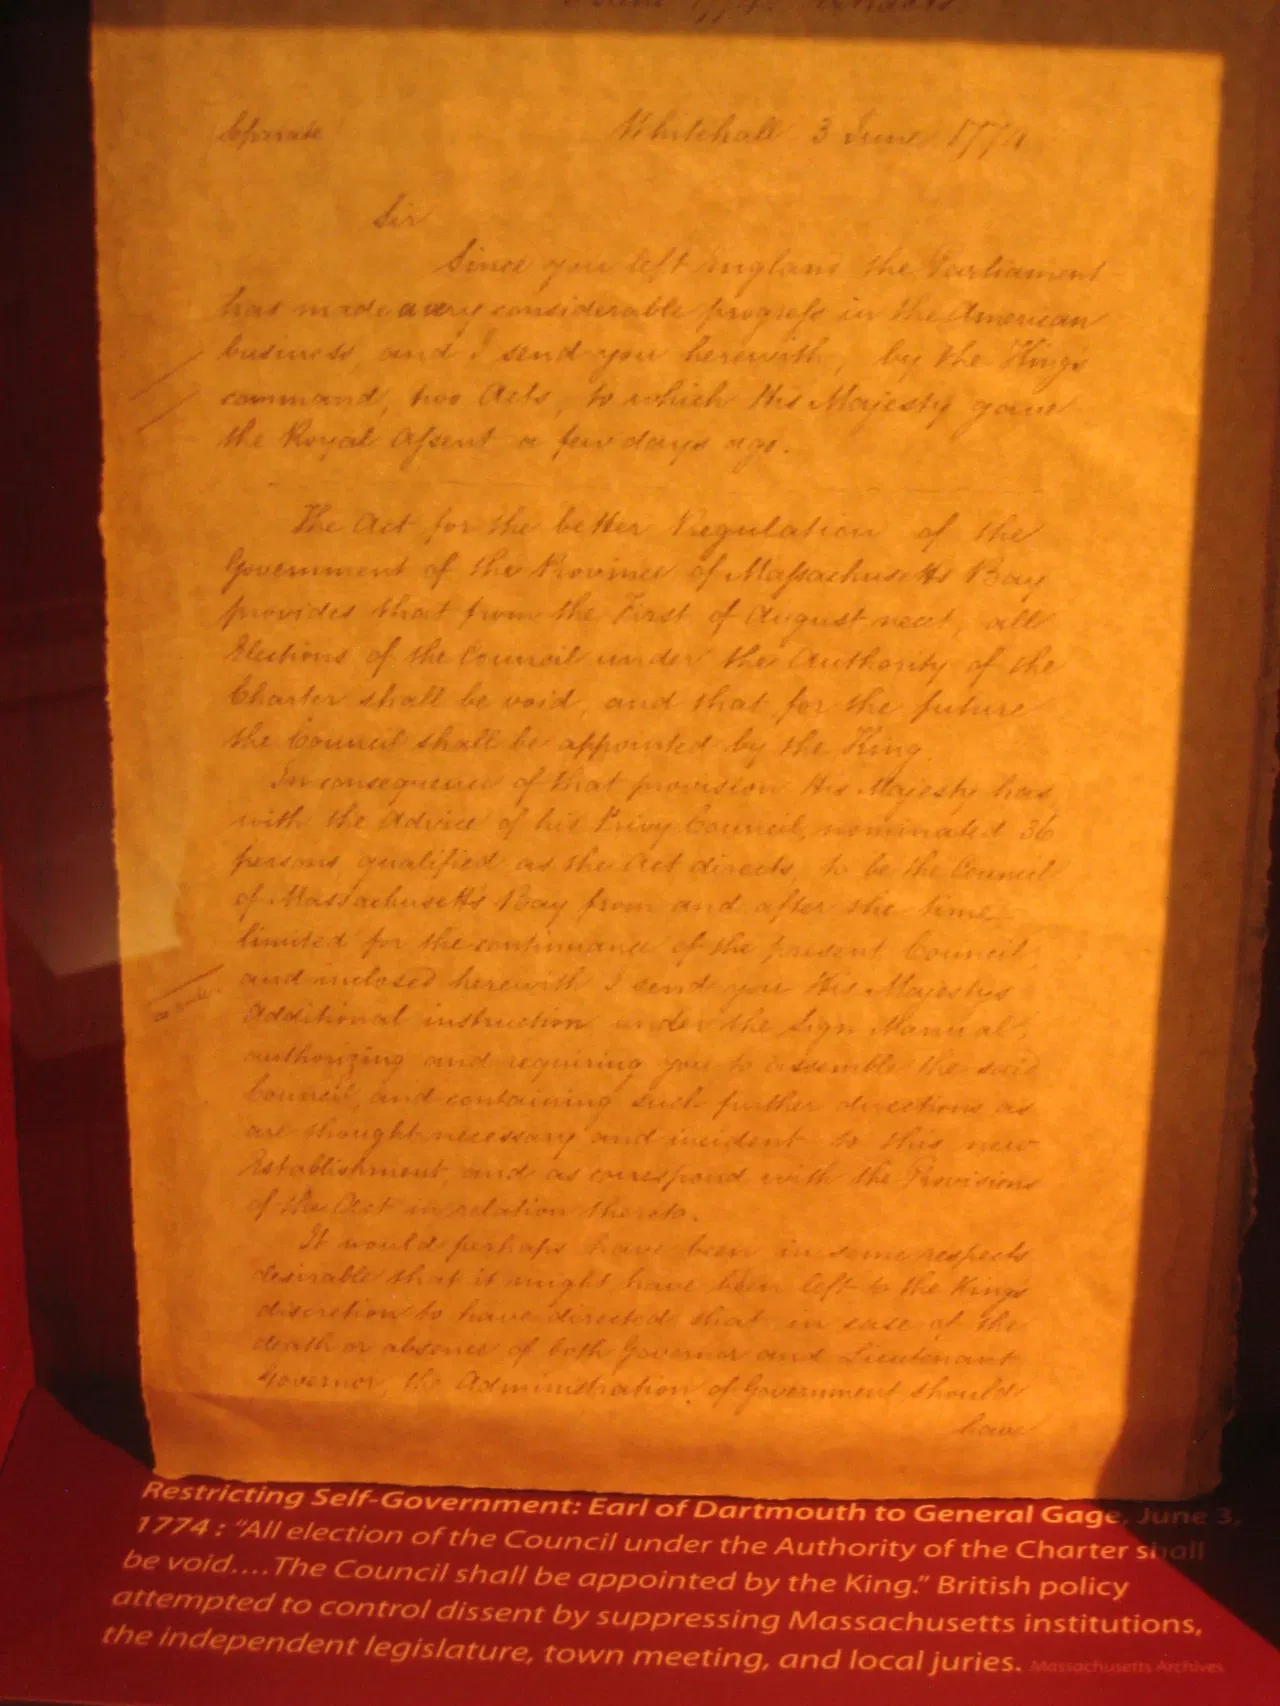 Separate Whitehall 3 June 1774
Sir
Since you left England the Parliament
has made a very considerable progress in the American
business, and I send you herewith, by the King's
command, two Acts, to which His Majesty gave
the Royal Assent a few days ago.
The Act for the better Regulation of the
Government of the Province of Massachusetts Bay
provides that from the First of August next, all
Elections of the Council under the Authority of the
Charter shall be void, and that for the future
the Council shall be appointed by the King.
In consequence of that provision His Majesty has,
with the Advice of his Privy Council, nominated 36
persons, qualified as the Act directs, to be the Council
of Massachusetts Bay from and after the time
limited for the continuance of the present Council,
and inclosed herewith I send you His Majestys
Additional instruction under the Sign Manual,
authorizing and requiring you to assemble the said
Council, and containing such further directions as
are thought necessary and incident to this new
Establishment, and as correspond with the Provisions
of the Act in relation thereto.
It would perhaps have been in some respects
desirable that it might have been left to the Kings
discretion to have directed that in case of the
death or absence of both Governor and Lieutenant
Governor, the Administration of Government should
have
Restricting Self-Government: Earl of Dartmouth to General Gage, June 3,
1774 : "All election of the Council under the Authority of the Charter shall
be void.... The Council shall be appointed by the King." British policy
attempted to control dissent by suppressing Massachusetts institutions,
the independent legislature, town meeting, and local juries. Massachusetts Archives